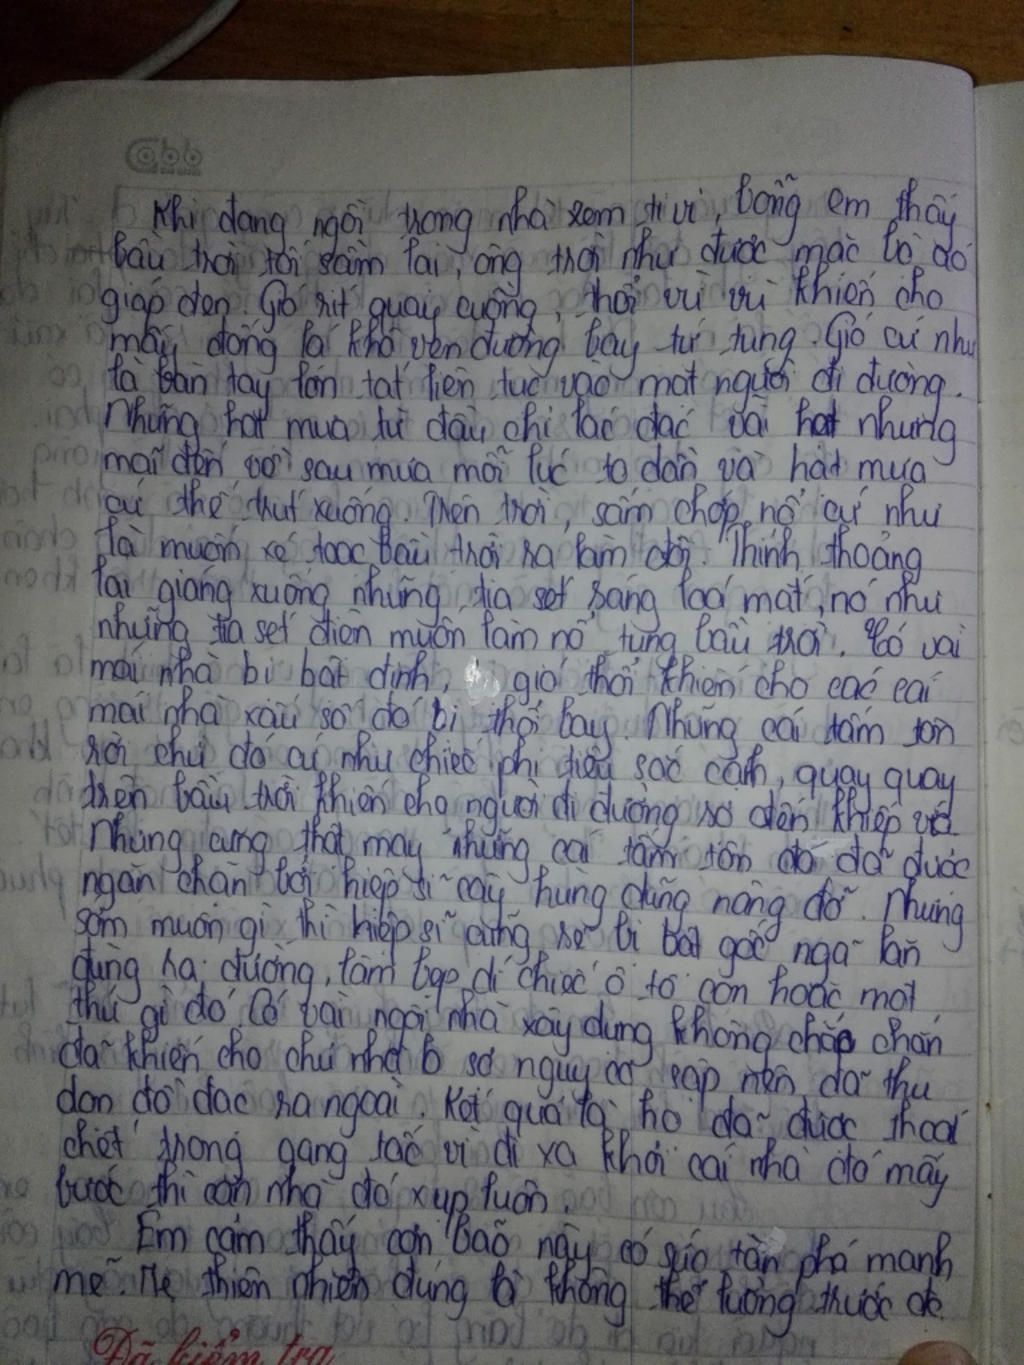 Cabb
Khi đang ngồi trong nhà xem ti vi, bỗng em thấy
bầu trời tối sầm lại, ông trời như được mặc bộ áo
giáp đen. Gió rít quay cuồng, thổi vù vù khiến cho
mấy đống lá khô ven đường bay tứ tung. Gió cứ như
là bàn tay lớn tát liên tục vào mặt người đi đường.
Những hạt mưa từ đầu chỉ lác đác vài hạt nhưng
mãi đến về sau mưa mỗi lúc to dần và hạt mưa
cứ thế trút xuống. Trên trời, sấm chớp nổ cứ như
là muốn xé toạc bầu trời ra làm đôi. Thỉnh thoảng
lại giáng xuống những tia sét sáng loá mắt, nó như
những tia sét điện muốn làm nổ tung bầu trời. Có vài
mái nhà bị bật dính, gió thổi khiến cho các cái
mái nhà xấu số đó bị thổi bay. Những cái tấm tôn
rời chủ đó cứ như chiếc phi tiêu sắc cạnh, quay quay
trên bầu trời khiến cho người đi đường sợ đến khiếp vía.
Nhưng cũng thật may những cái tấm tôn đó đã được
ngăn chặn bởi hiệp sĩ cây hùng dũng nâng đỡ. Nhưng
sớm muộn gì thì hiệp sĩ cũng sẽ bị bật gốc ngã lăn
đùng ra đường, làm bẹp dí chiếc ô tô con hoặc một
thứ gì đó. Có vài ngôi nhà xây dựng không chắc chắn
đã khiến cho chủ nhà lo sợ nguy cơ sập nên đã thu
dọn đồ đạc ra ngoài. Kết quả là họ đã được thoát
chết trong gang tấc vì đi xa khỏi cái nhà đó mấy
bước thì căn nhà đó xụp luôn.
Em cảm thấy cơn bão này có sức tàn phá mạnh
mẽ. Mẹ thiên nhiên đúng là không thể lường trước đc.
Đã kiểm tra